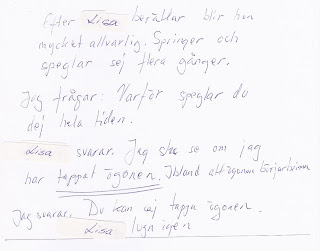 Efter Lisa berättar blir hon
mycket allvarlig. Springer och
speglar sej flera gånger.
Jag frågar: Varför speglar du
dej hela tiden.
Lisa svarar. Jag ska se om jag
har tappat ögonen. Ibland att ögonen börjar
Jag svarar. Du kan ej tappa ögonen.
Lisa lugn igen